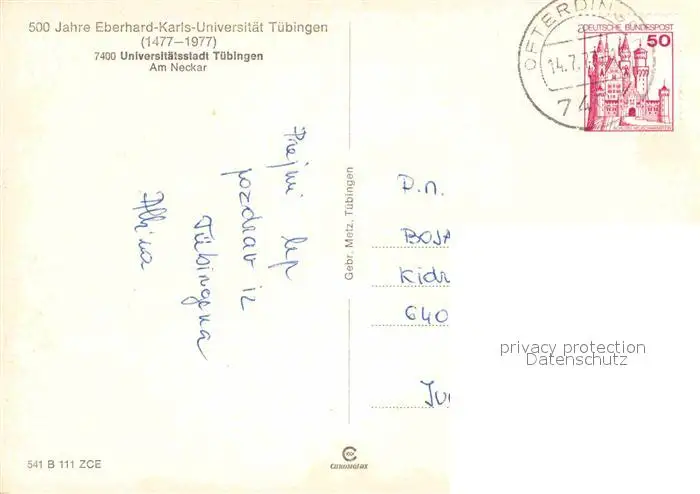 500 Jahre Eberhard-Karls-Universität Tübingen
(1477–1977)
7400 Universitätsstadt Tübingen
Am Neckar
OFTERDIN
14.7.7
74
DEUTSCHE BUNDESPOST
50
Prejmi lep
pozdrav iz
Tübingena
Gebr. Metz, Tübingen
P.n.
BOJA
Kidr
640
Ju
privacy protection
Datenschutz
541 B 111 ZCE